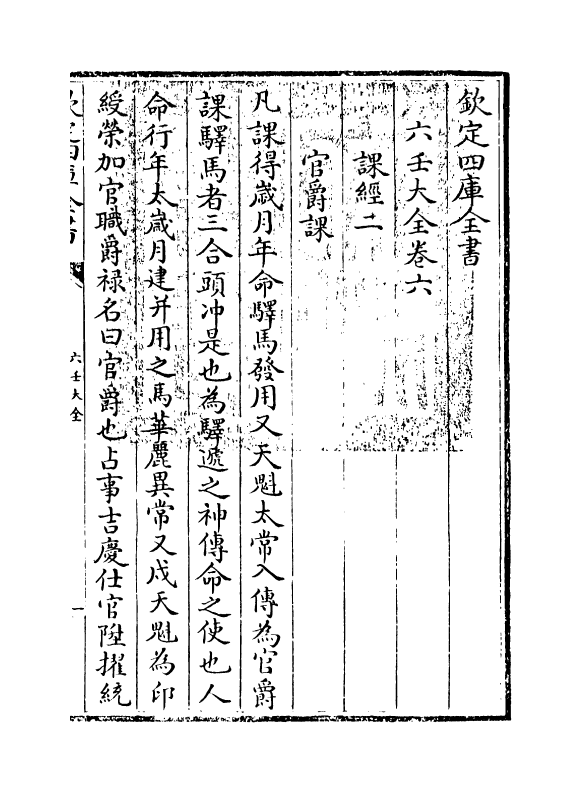 欽定四庫全書
六壬大全卷六
課經二
官爵課
凡課得嵗月年命驛馬發用又天魁太常入傳為官爵
課驛馬者三合頭冲是也為驛遞之神傳命之使也人
命行年太嵗月建并用之馬華麗異常又戍天魁為印
綬榮加官職爵禄名曰官爵也占事吉慶仕官陞擢統
六壬大全
一